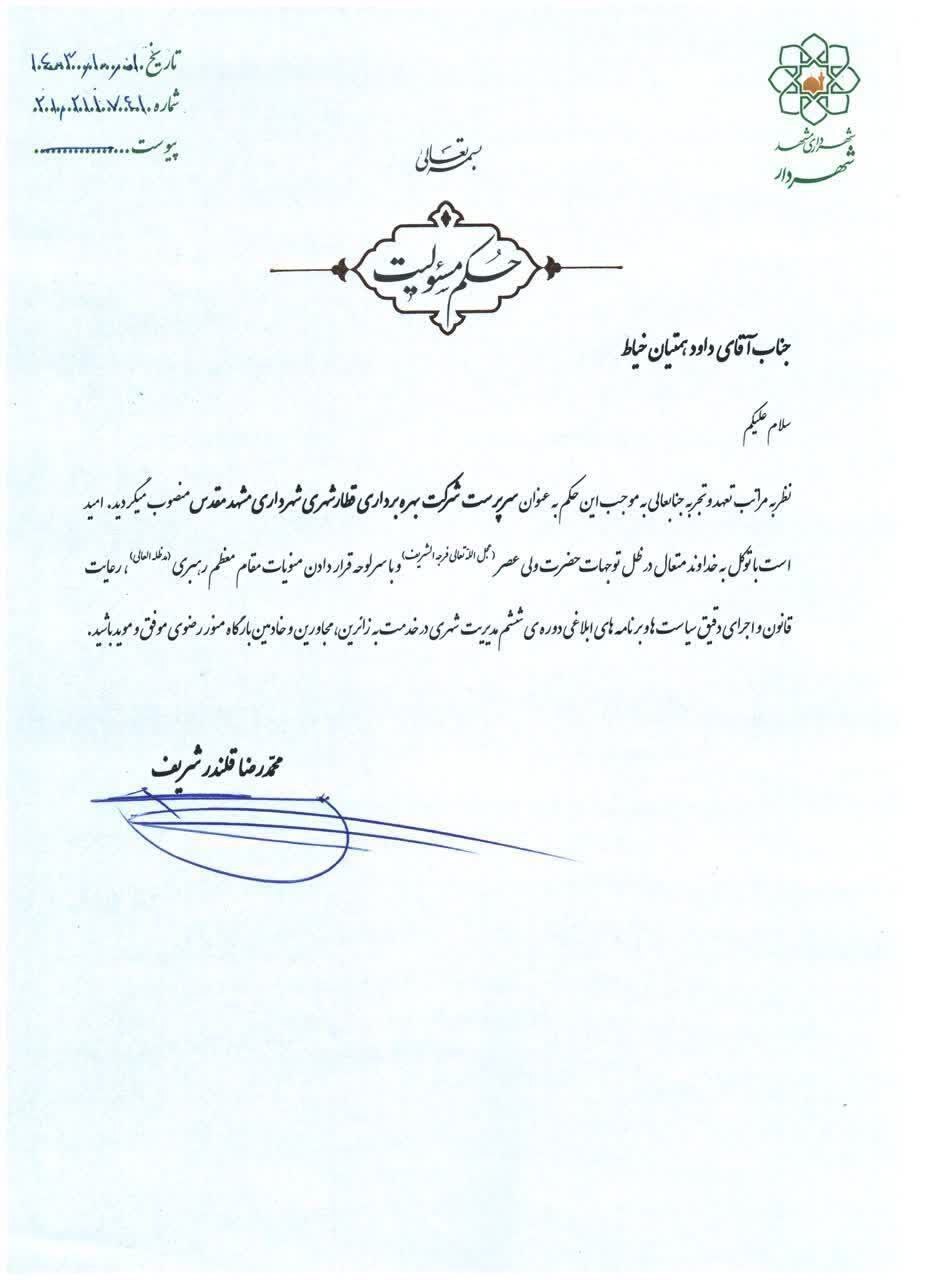 شهرداری مشهد
شهردار
تاریخ
شماره
پیوست
بسمه تعالی
حکم مسئولیت
جناب آقای داود همتیان خیاط
سلام علیکم
نظر به مراتب تعهد و تجربه جنابعالی به موجب این حکم به عنوان سرپرست شرکت بهره برداری قطار شهری شهرداری مشهد مقدس منصوب میگردید. امید
است با توکل به خداوند متعال در ظل توجهات حضرت ولی عصر (عجل الله تعالی فرجه الشریف) و با سرلوحه قرار دادن منویات مقام معظم رهبری (مدظله العالی)، رعایت
قانون و اجرای دقیق سیاست ها و برنامه های ابلاغی دوره ی ششم مدیریت شهری در خدمت به زائرین، مجاورین و خادمین بارگاه منور رضوی موفق و موید باشید.
محمدرضا قلندر شریف